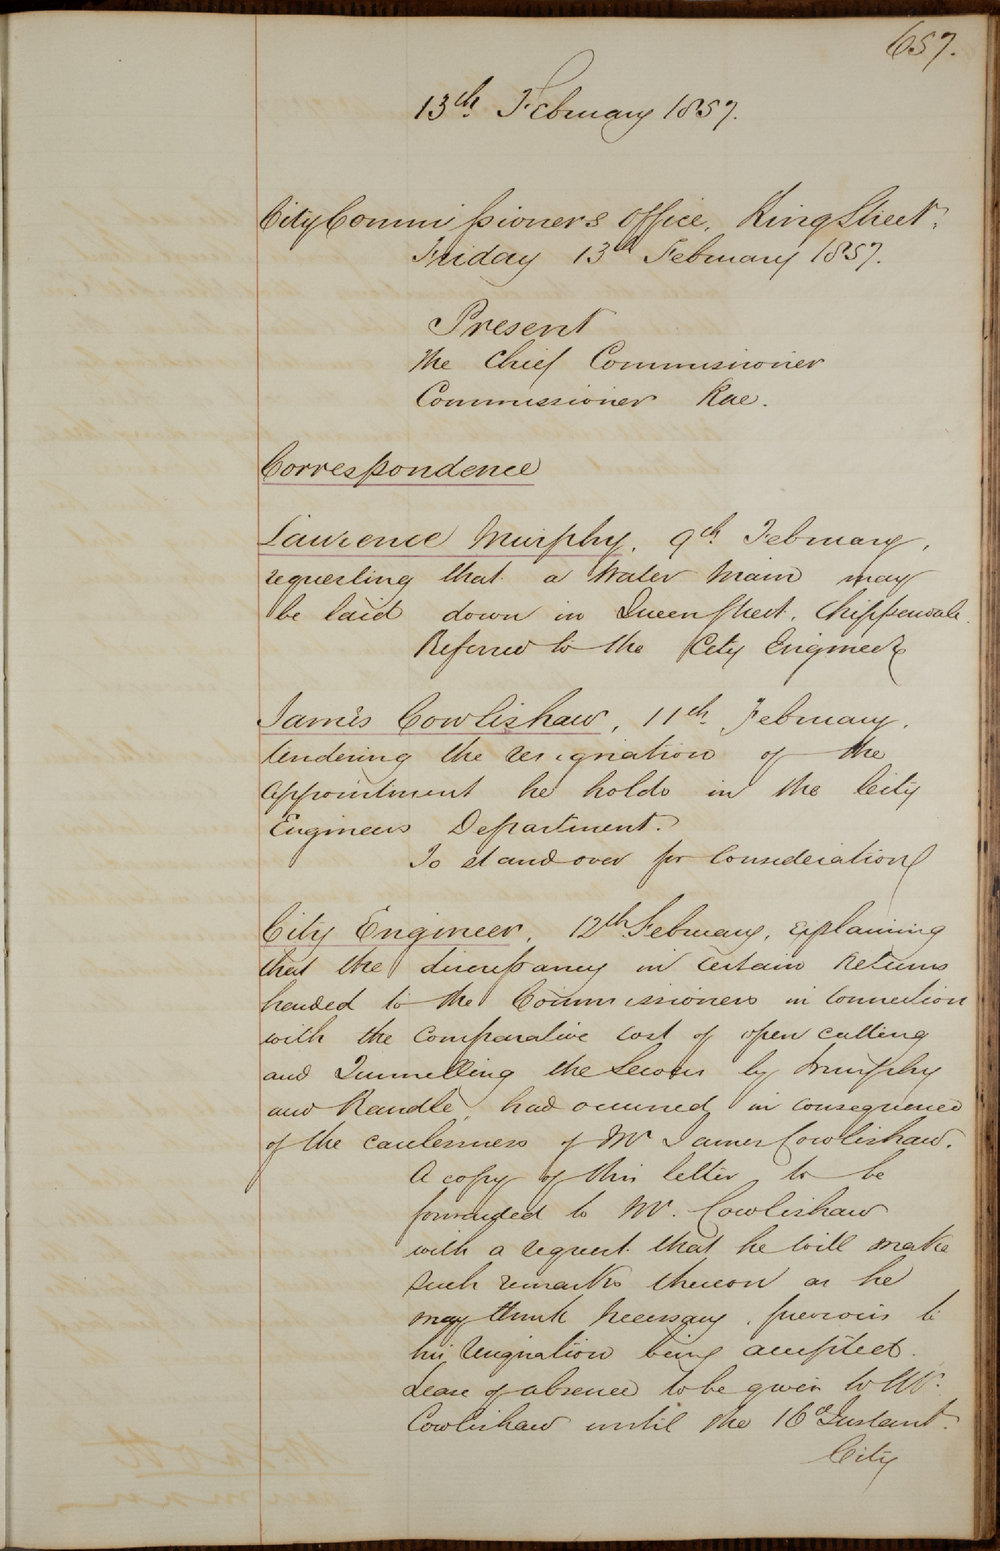 657.
13th February 1857.
City Commissioners Office, King Street,
Friday 13th February 1857.
Present
The Chief Commissioner
Commissioner Rae.
Correspondence
Laurence Murphy, 9th February,
requesting that a Water Main may
be laid down in Queen Street, Chippendale.
Referred to the City Engineer
James Cowlishaw, 11th February,
tendering the resignation of the
appointment he holds in the City
Engineers Department.
To stand over for Consideration
City Engineer, 12th February, explaining
that the discrepancy in certain Returns
handed to the Commissioners in connection
with the comparative cost of open cutting
and Tunnelling the Sewers by Murphy
and Randle, had occurred in consequence
of the carelessness of Mr James Cowlishaw.
A copy of this letter to be
forwarded to Mr. Cowlishaw
with a request that he will make
such remarks thereon as he
may think necessary, previous to
his resignation being accepted.
Leave of absence to be given to Mr.
Cowlishaw until the 16th Instant.
City